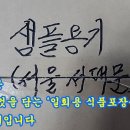 샘플용기
(서울 서대문
것을 담는 '일회용 식품포장
입니다